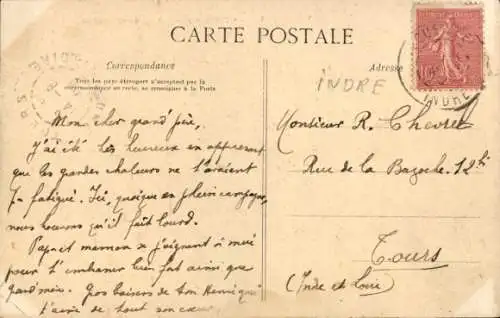 CARTE POSTALE
Correspondance
Tous les pays étrangers n'acceptent pas la
correspondance au recto, se renseigner à la Poste
Adresse
INDRE
INDRE
Mon cher grand père,
J'ai été très heureux en apprenant
que les grandes chaleurs ne t'avaient
pas fatigué. Ici, quoique en pleine campagne,
nous trouvons qu'il fait lourd.
Papa et maman se joignent à moi
pour t'embrasser bien fort ainsi que
grand'mère. Gros baisers de ton
t'aime de tout son cœur
Monsieur R. Chevret
Rue de la Bazoche 12
Tours
(Indre et Loire)